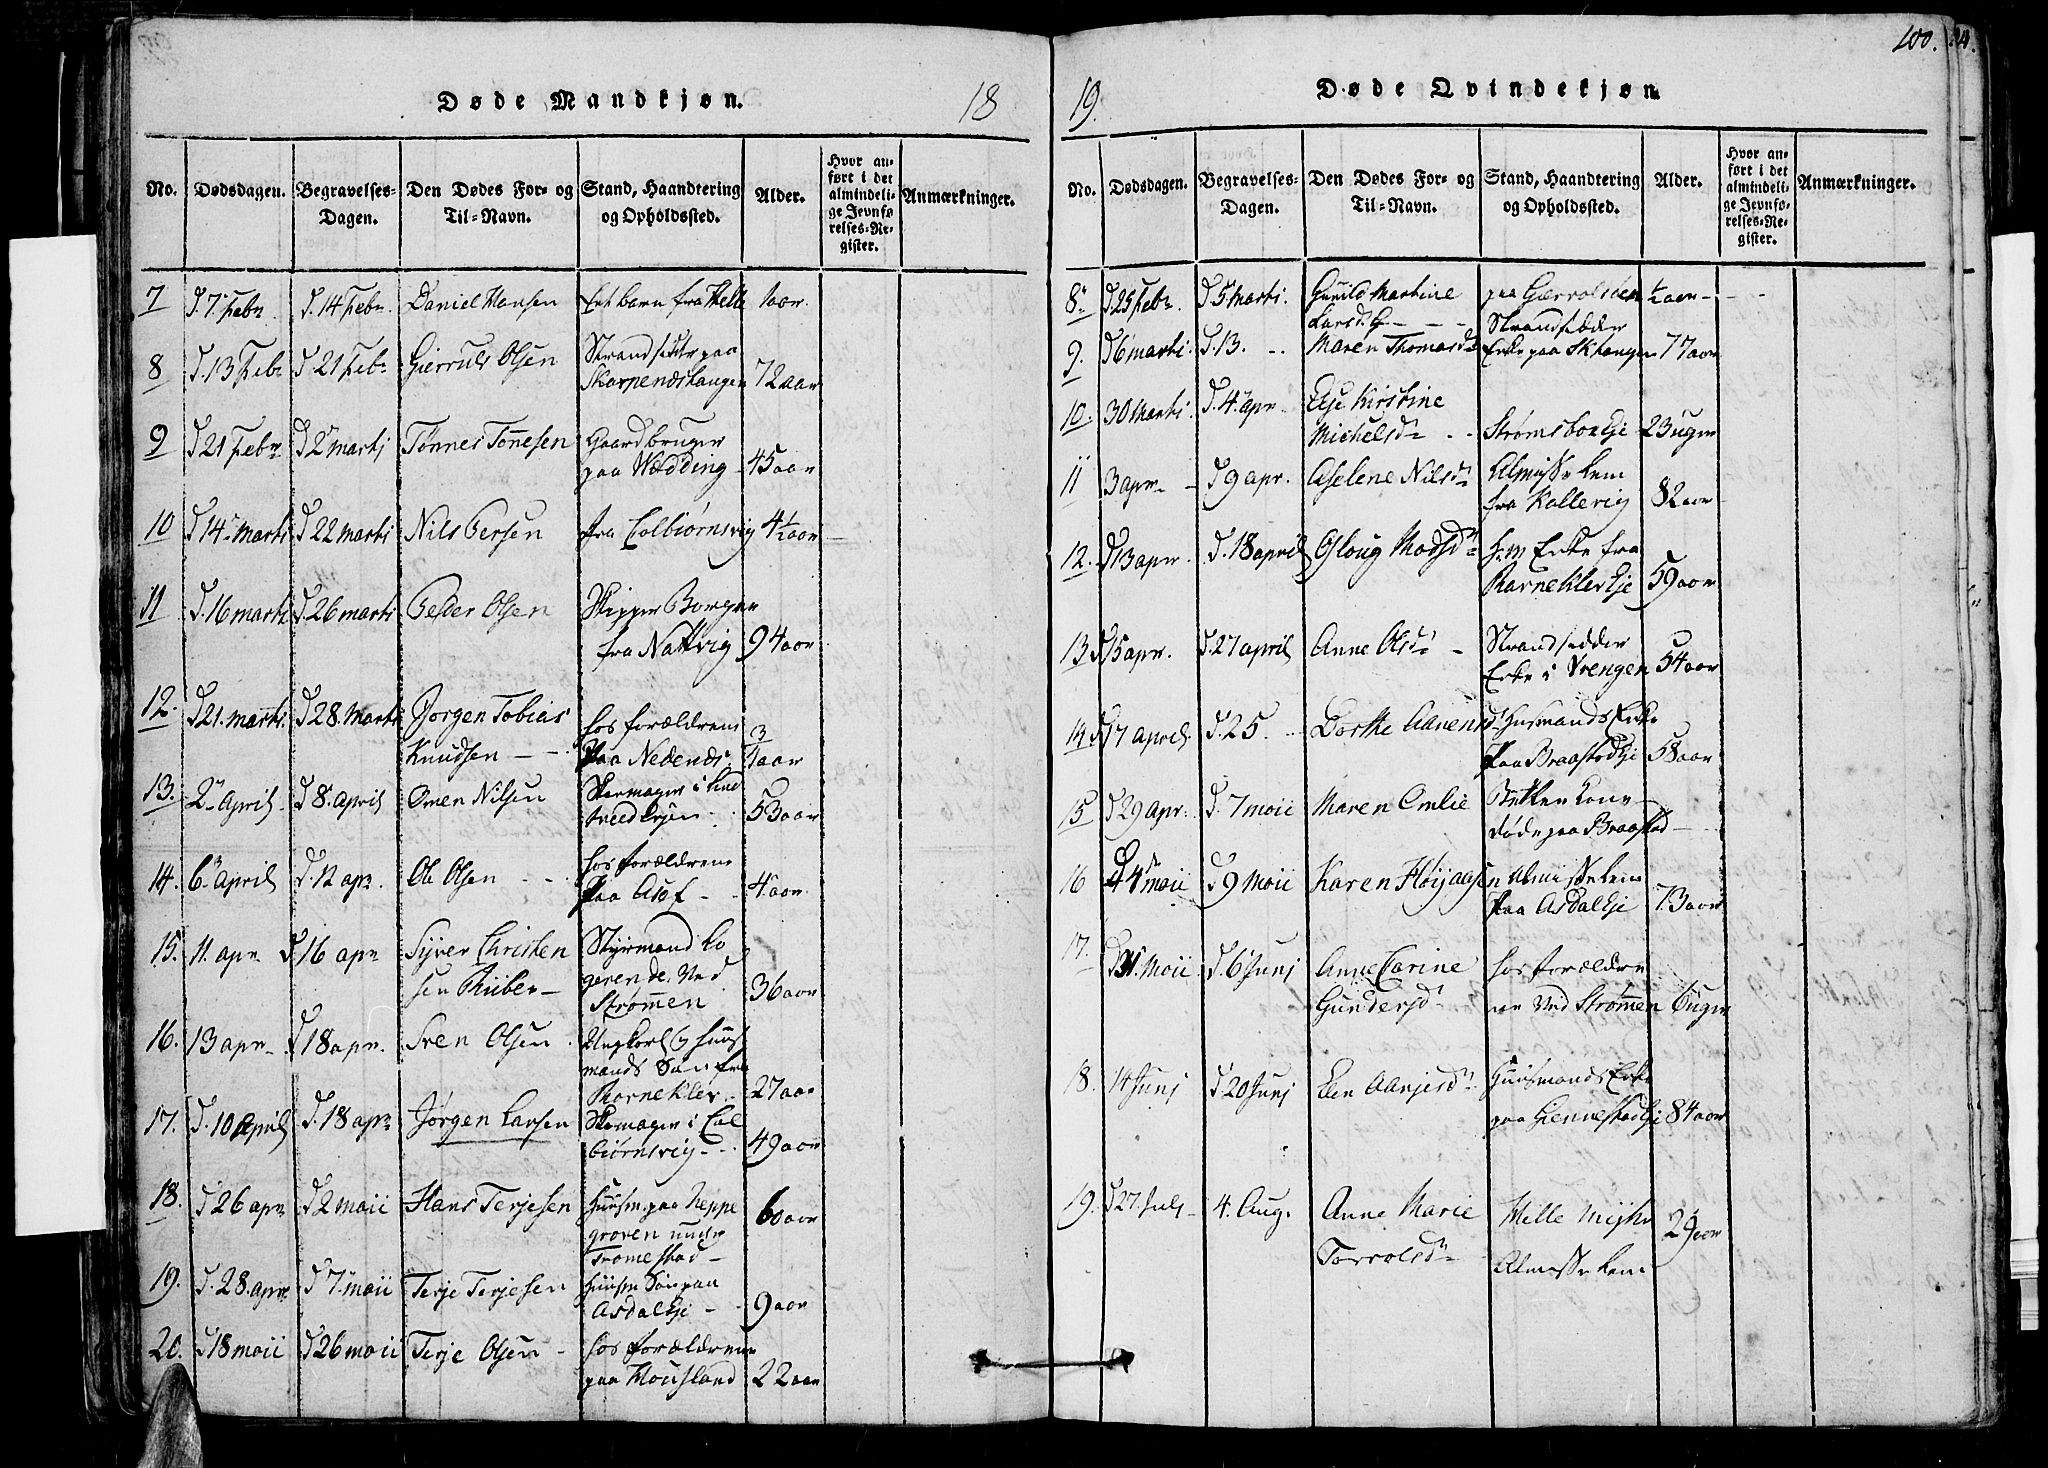 100.
Døde Mandkjøn. 18
No. Dødsdagen. Begravelses-Dagen. Den Dødes For- og Til-Navn. Stand, Haandtering og Opholdssted. Alder. Hvor anført i det almindelige Jevnførelses-Register. Anmærkninger.
7 d. 7 Febr d. 14 Febr Daniel Hansen Et barn fra Helle 1 aar.
8 d. 13 Febr d 21 Febr Gierruls Olsen Strandsidder paa
Skarpenæstangen 72 aar
9 d 21 Febr d 2 marti Tønnes Tønesen Gaardbruger
paa Wædding 45 aar
10 d 14 marti d 22 marti Nils Persen fra Colbiørnsvig 4½ aar
11 d. 16 marti d. 26 marti Peder Olsen Skipper Borger
fra Nattvig 94 aar
12. d 21. marti d 28. Marti Jørgen Tobias
Knudsen hos forældrene
paa Nedenæs. 3/4 aar
13. 2 April d 8. April Omen Nilsen Skomager i
53 aar
14. 6 April d. 12 apr. Ole Olsen hos forældrene
paa Asdf 4 aar
15. 11. apr d 16 apr Syver Christen
sen Riiber Styrmand lo
gerende Ved
Strømen 36 aar
16. 13 apr d 18 apr. Sven Olsen Ungkarl og huus
mands Søn fra
Barnekler 27 aar
17. d. 10 April d. 18 apr Jørgen Larsen Skomager i Col
biørnsvig 49 aar
18. d 26 apr d 2 maii Hans Terjesen huusm. paa Reppe
groven under
Tromestad 60 aar
19. d. 28. apr d 7. maii Terje Terjesen huusm Søn paa
Asdal Eje 9 aar
20. d 18 maii d 26 maii Terje Olsen hos forældrene
paa Housland 22 aar
19. Døde Qvindekjøn
No. Dødsdagen. Begravelses-Dagen. Den Dødes For- og Til-Navn. Stand, Haandtering og Opholdssted. Alder. Hvor anført i det almindelige Jevnførelses-Register. Anmærkninger.
8 d 25 Febr. d 5 Marti. Gunild Martine
Larsd paa Gærvolsøen ½ aar
9. d 6 marti. d. 13. Maren Thomasd Strandsidder
Enke paa Sktangen 77 aar
10. 30 Marti. d. 4 apr Else Kirstine
Michelsd Strømsboe Eje 23 uger
11 3 apr d 9 apr. Aselene Nilsd Almisse Lem
fra Kallevig 82 aar
12. d 13 apr d. 18 april Asloug Madsd h:m Enke fra
Barnekler Eje 59 aar
13 d 15 apr. d. 27 april Anne Olsd Strandsidder
Enke i Vrengen 54 aar
14 d 17 april. d. 25. Dorthe Aanensd Husmands Enke
paa Braasted Eje 58 aar
15 d 29 apr. d. 7 maii Maren Emlie Betler kone
døde paa Braastad
16 d 4 maii d 9 Maii Karen Høijaasen Almisse Lem
paa Asdal Eje 73 aar
17. d 31. Maii d. 6 Junj Anne Carine
Gundersd hos forældre
ne Ved Strømen 6 uger
18. 14 Junj d 20 Junj Elen Aanjesd Huusmands Enke
paa Giennestad Ej 84 aar
19. d 27. July 4. Aug. Anne Marie
Torvolsd Helle Mijhr
Almisse Lem 29 aar